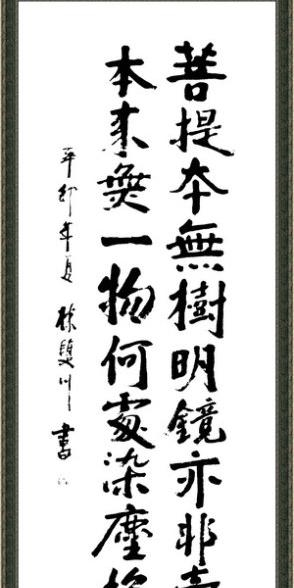 菩提本無樹明鏡亦非
本来無一物何處染塵
辛卯年夏 川書